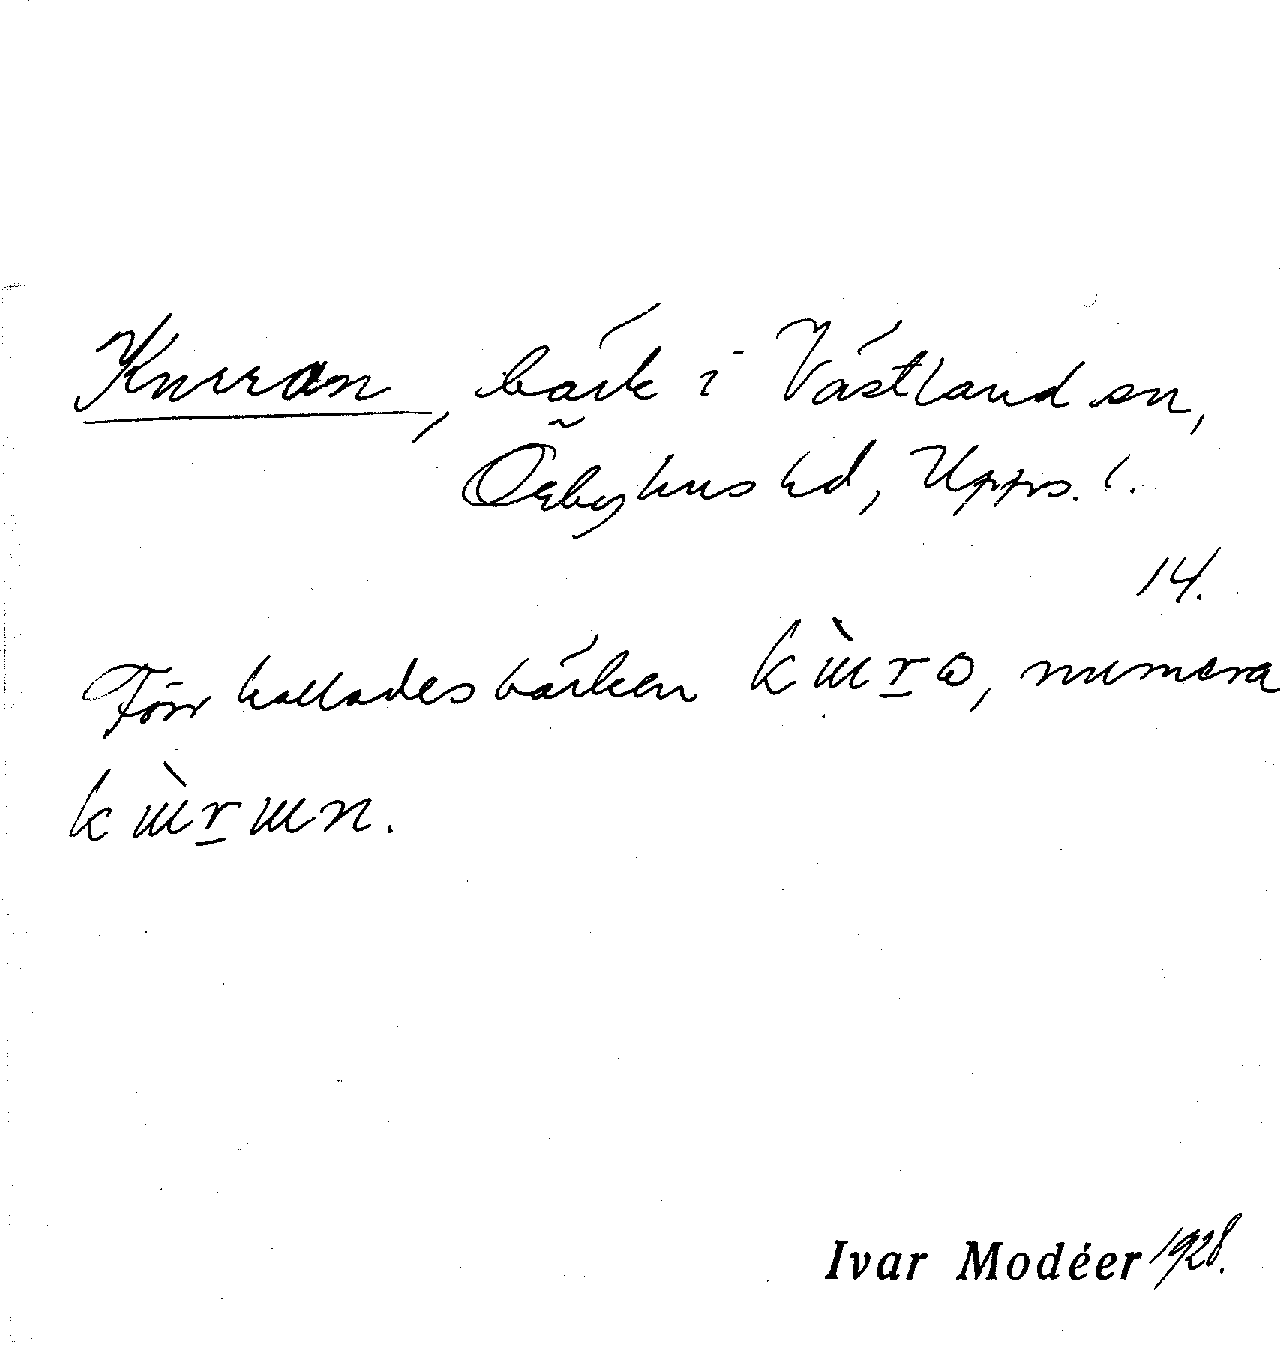 Kurran, bäck i Västland sn,
Örbyhus hd, Upps. l.
14.
Förr kallades bäcken kɯ̀r̲ɷ, numera
kɯ̀r̲ɯn.
Ivar Modéer 1928.